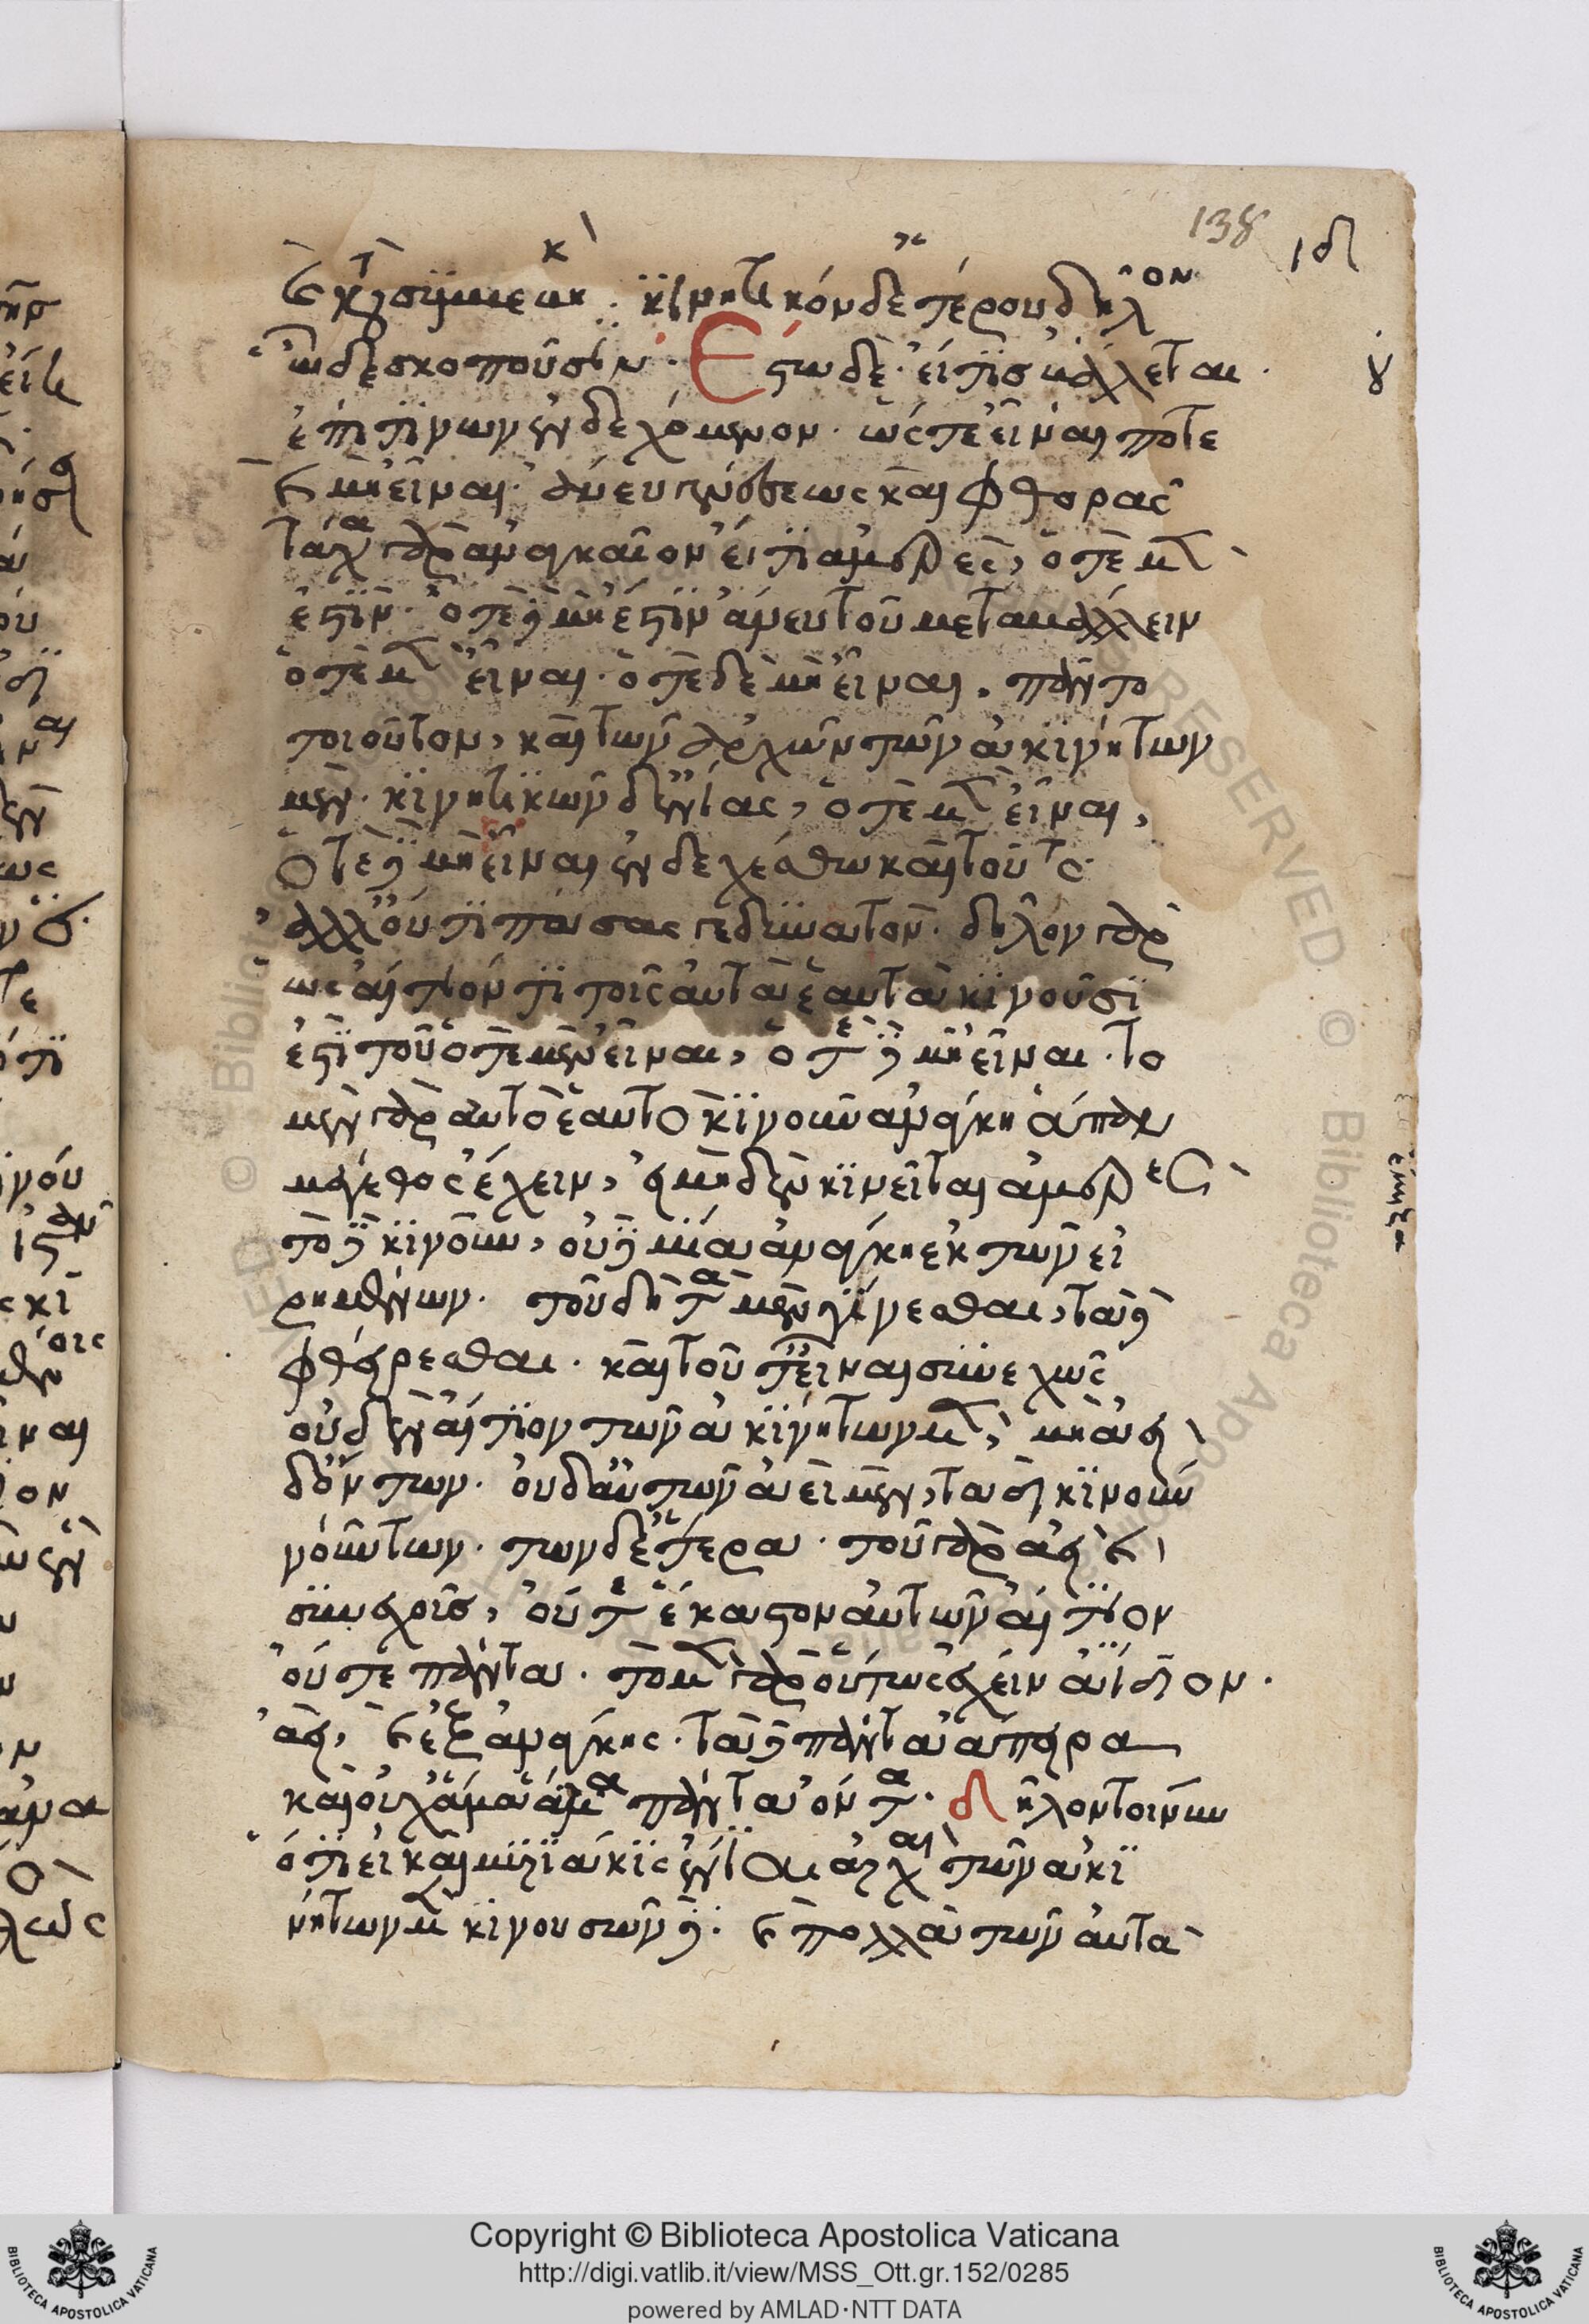 138
ιδ
καὶ κατὰ συμβεβηκός. κινητικὸν δ' ἑτέρου δῆλον
ὧδε σκοποῦσιν. Ἔστω δὲ εἴ τις βάλλεται
γ
ἐπί τινων ἐνδεχόμενον. ὥστε εἶναί ποτε
καὶ μὴ εἶναι ἄνευ γενέσεως καὶ φθορᾶς
τάχα γὰρ ἀναγκαῖον εἴ τι ἀμερές, ὁτὲ μὲν
ἐστίν. ὁτὲ δὲ μὴ ἔστιν ἄνευ τοῦ μεταβάλλειν
ὁτὲ μὲν εἶναι. ὁτὲ δὲ μὴ εἶναι, πᾶν τὸ
τοιοῦτον, καὶ τῶν ἀρχῶν τῶν ἀκινήτων
μὲν. κινητικῶν δ' ἐνίας, ὁτὲ μὲν εἶναι,
ὁτὲ δὲ μὴ εἶναι ἐνδεχέσθω καὶ τοῦτο
ἀλλ' οὔ τι πάσας γε δυνατόν. δῆλον γὰρ
ὡς αἴτιόν τι τοῖς αὐτὰ ἑαυτὰ κινοῦσι
ἐστὶ τοῦ ὁτὲ μὲν εἶναι, ὁτὲ δὲ μὴ εἶναι. τὸ
μὲν γὰρ αὐτὸ ἑαυτὸ κινοῦν ἀνάγκη ἅπαν
μέγεθος ἔχειν, εἰ μηδὲν κινεῖται ἀμερές
τὸ δὲ κινοῦν, οὐδεμία ἀνάγκη ἐκ τῶν εἰ
ρημένων. τοῦ δὴ τὰ μὲν γίνεσθαι, τὰ δὲ
φθείρεσθαι. καὶ τοῦτ' εἶναι συνεχῶς
οὐδὲν αἴτιον τῶν ἀκινήτων μὲν, μὴ ἀεὶ
δ' ὄντων. οὐδ' αὖ τῶν ἀεὶ μὲν, ταδὶ κινού
νούντων. τῶν δ' ἕτερα. τοῦ γὰρ ἀεὶ καὶ
συνεχοῦς, οὔτε ἕκαστον αὐτῶν αἴτιον
οὔτε πάντα. τὸ μὲν γὰρ οὕτως ἔχειν ἀΐδιον.
ἀεὶ, καὶ ἐξ ἀνάγκης. τὰ δὲ πάντα ἄπειρα
καὶ οὐχ ἅμα ἅμα πάντα ὄντα. δῆλον τοίνυν
ὅτι εἰ καὶ μυριάκις ἔνιαι ἀρχαὶ τῶν ἀκι
νήτων μὲν κινουσῶν δέ. καὶ πολλὰ τῶν αὐτὰ
Copyright © Biblioteca Apostolica Vaticana
http://digi.vatlib.it/view/MSS_Ott.gr.152/0285
powered by AMLAD·NTT DATA